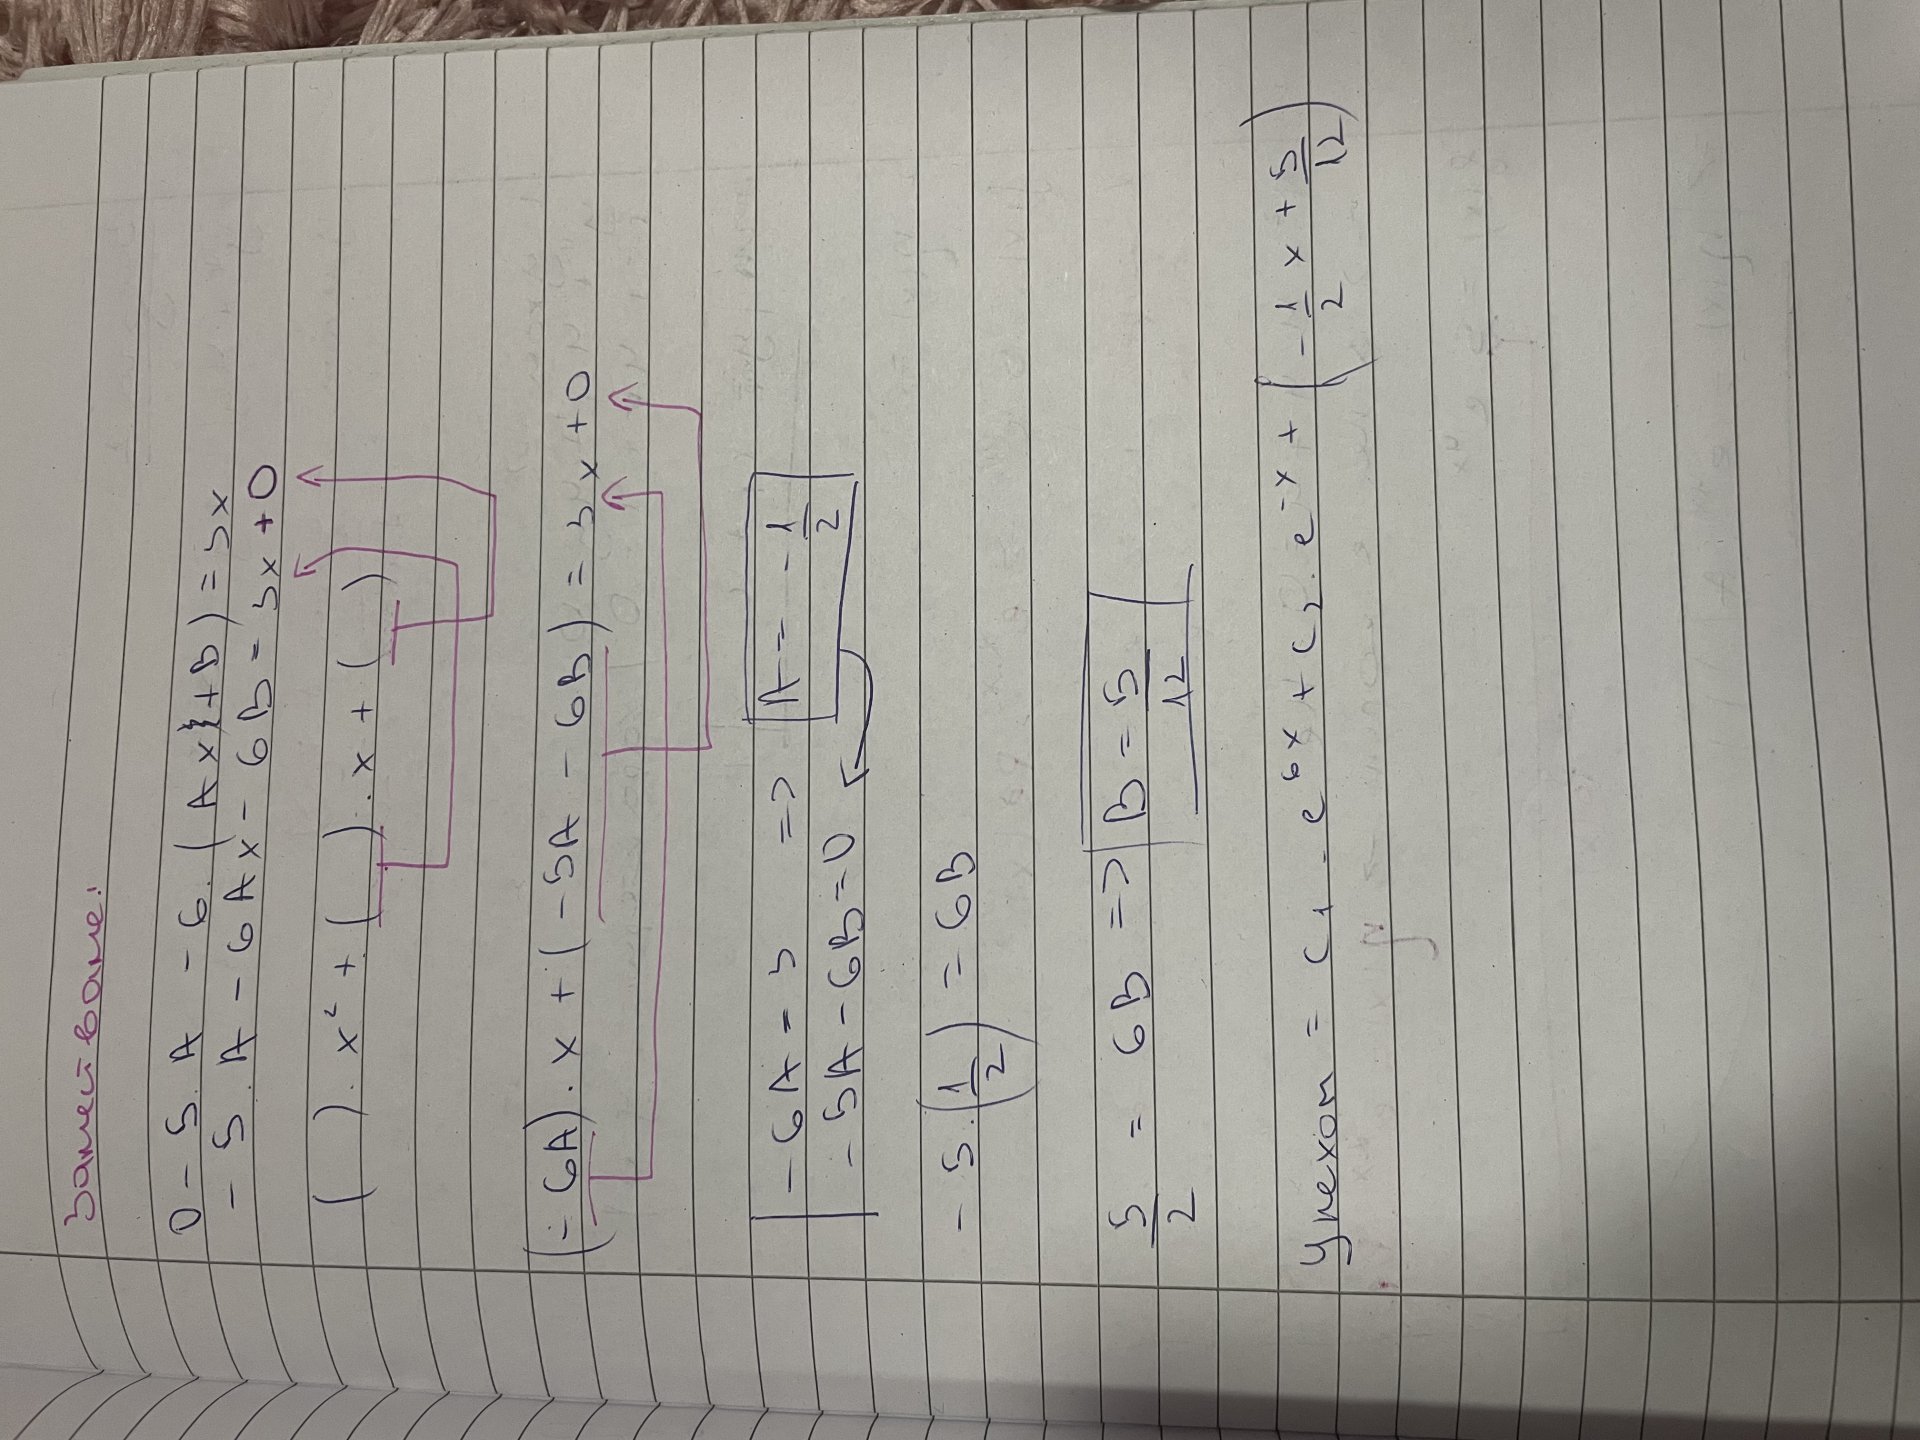 Заместваме:
0 - 5 . A - 6 . (Ax + B) = 3x
- 5 . A - 6Ax - 6B = 3x + 0
( ) . x² + ( ) . x + ( )
(- 6A) . x + (- 5A - 6B) = 3x + 0
| - 6A = 3 => A = - 1/2
| - 5A - 6B = 0
- 5 . (1/2) = 6B
5/2 = 6B => B = 5/12
Yнехом = C1 . e^6x + C2 . e^-x + (- 1/2 x + 5/12)